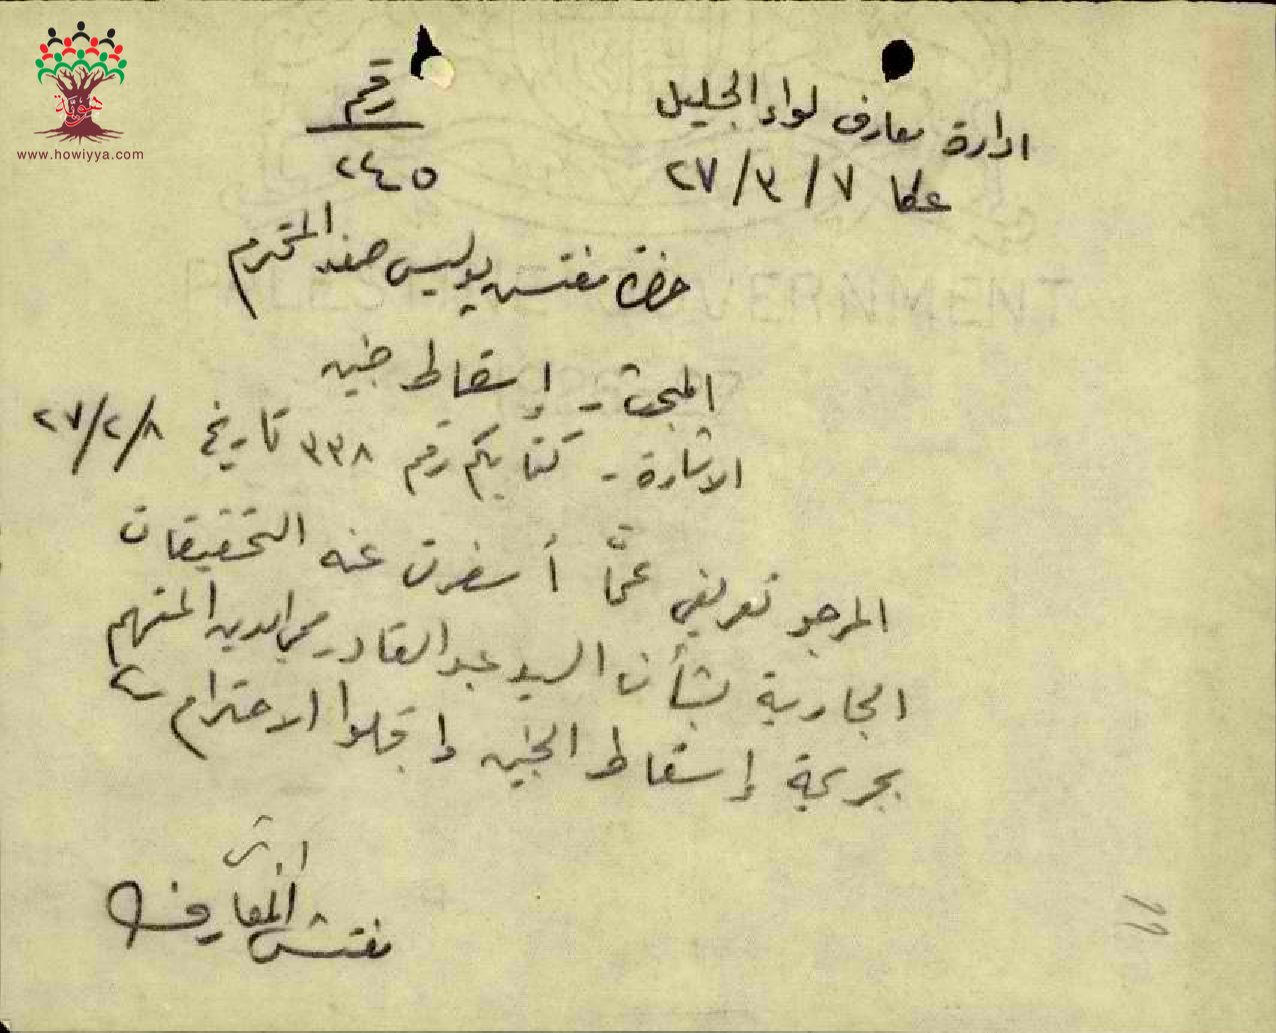 هوية
www.howiyya.com
ادارة معارف لواء الجليل
عكا ٧/٣/٢٧
رقم
٢٤٥
حضرة مفتش بوليس صفد المحترم
المبحث - إسقاط جنين
الاشارة - كتابكم رقم ٣٣٨ تاريخ ٨/٢/٢٧
المرجو تعريفي عمَّا أسفرت عنه التحقيقات
الجارية بشأن السيد عبد القادر محي الدين المتهم
بجريمة إسقاط الجنين واقبلوا الاحترام
مفتش المعارف
PALESTINE GOVERNMENT